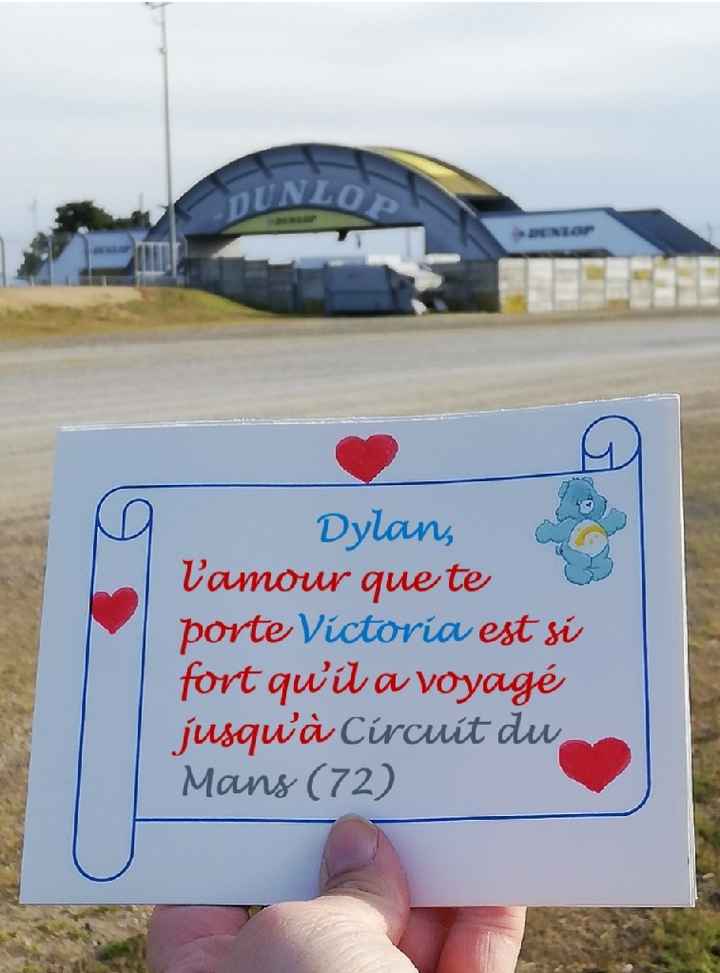 DUNLOP
DUNLOP
DUNLOP
Dylan,
l'amour que te
porte Victoria est si
fort qu'il a voyagé
jusqu'à Circuit du
Mans (72)